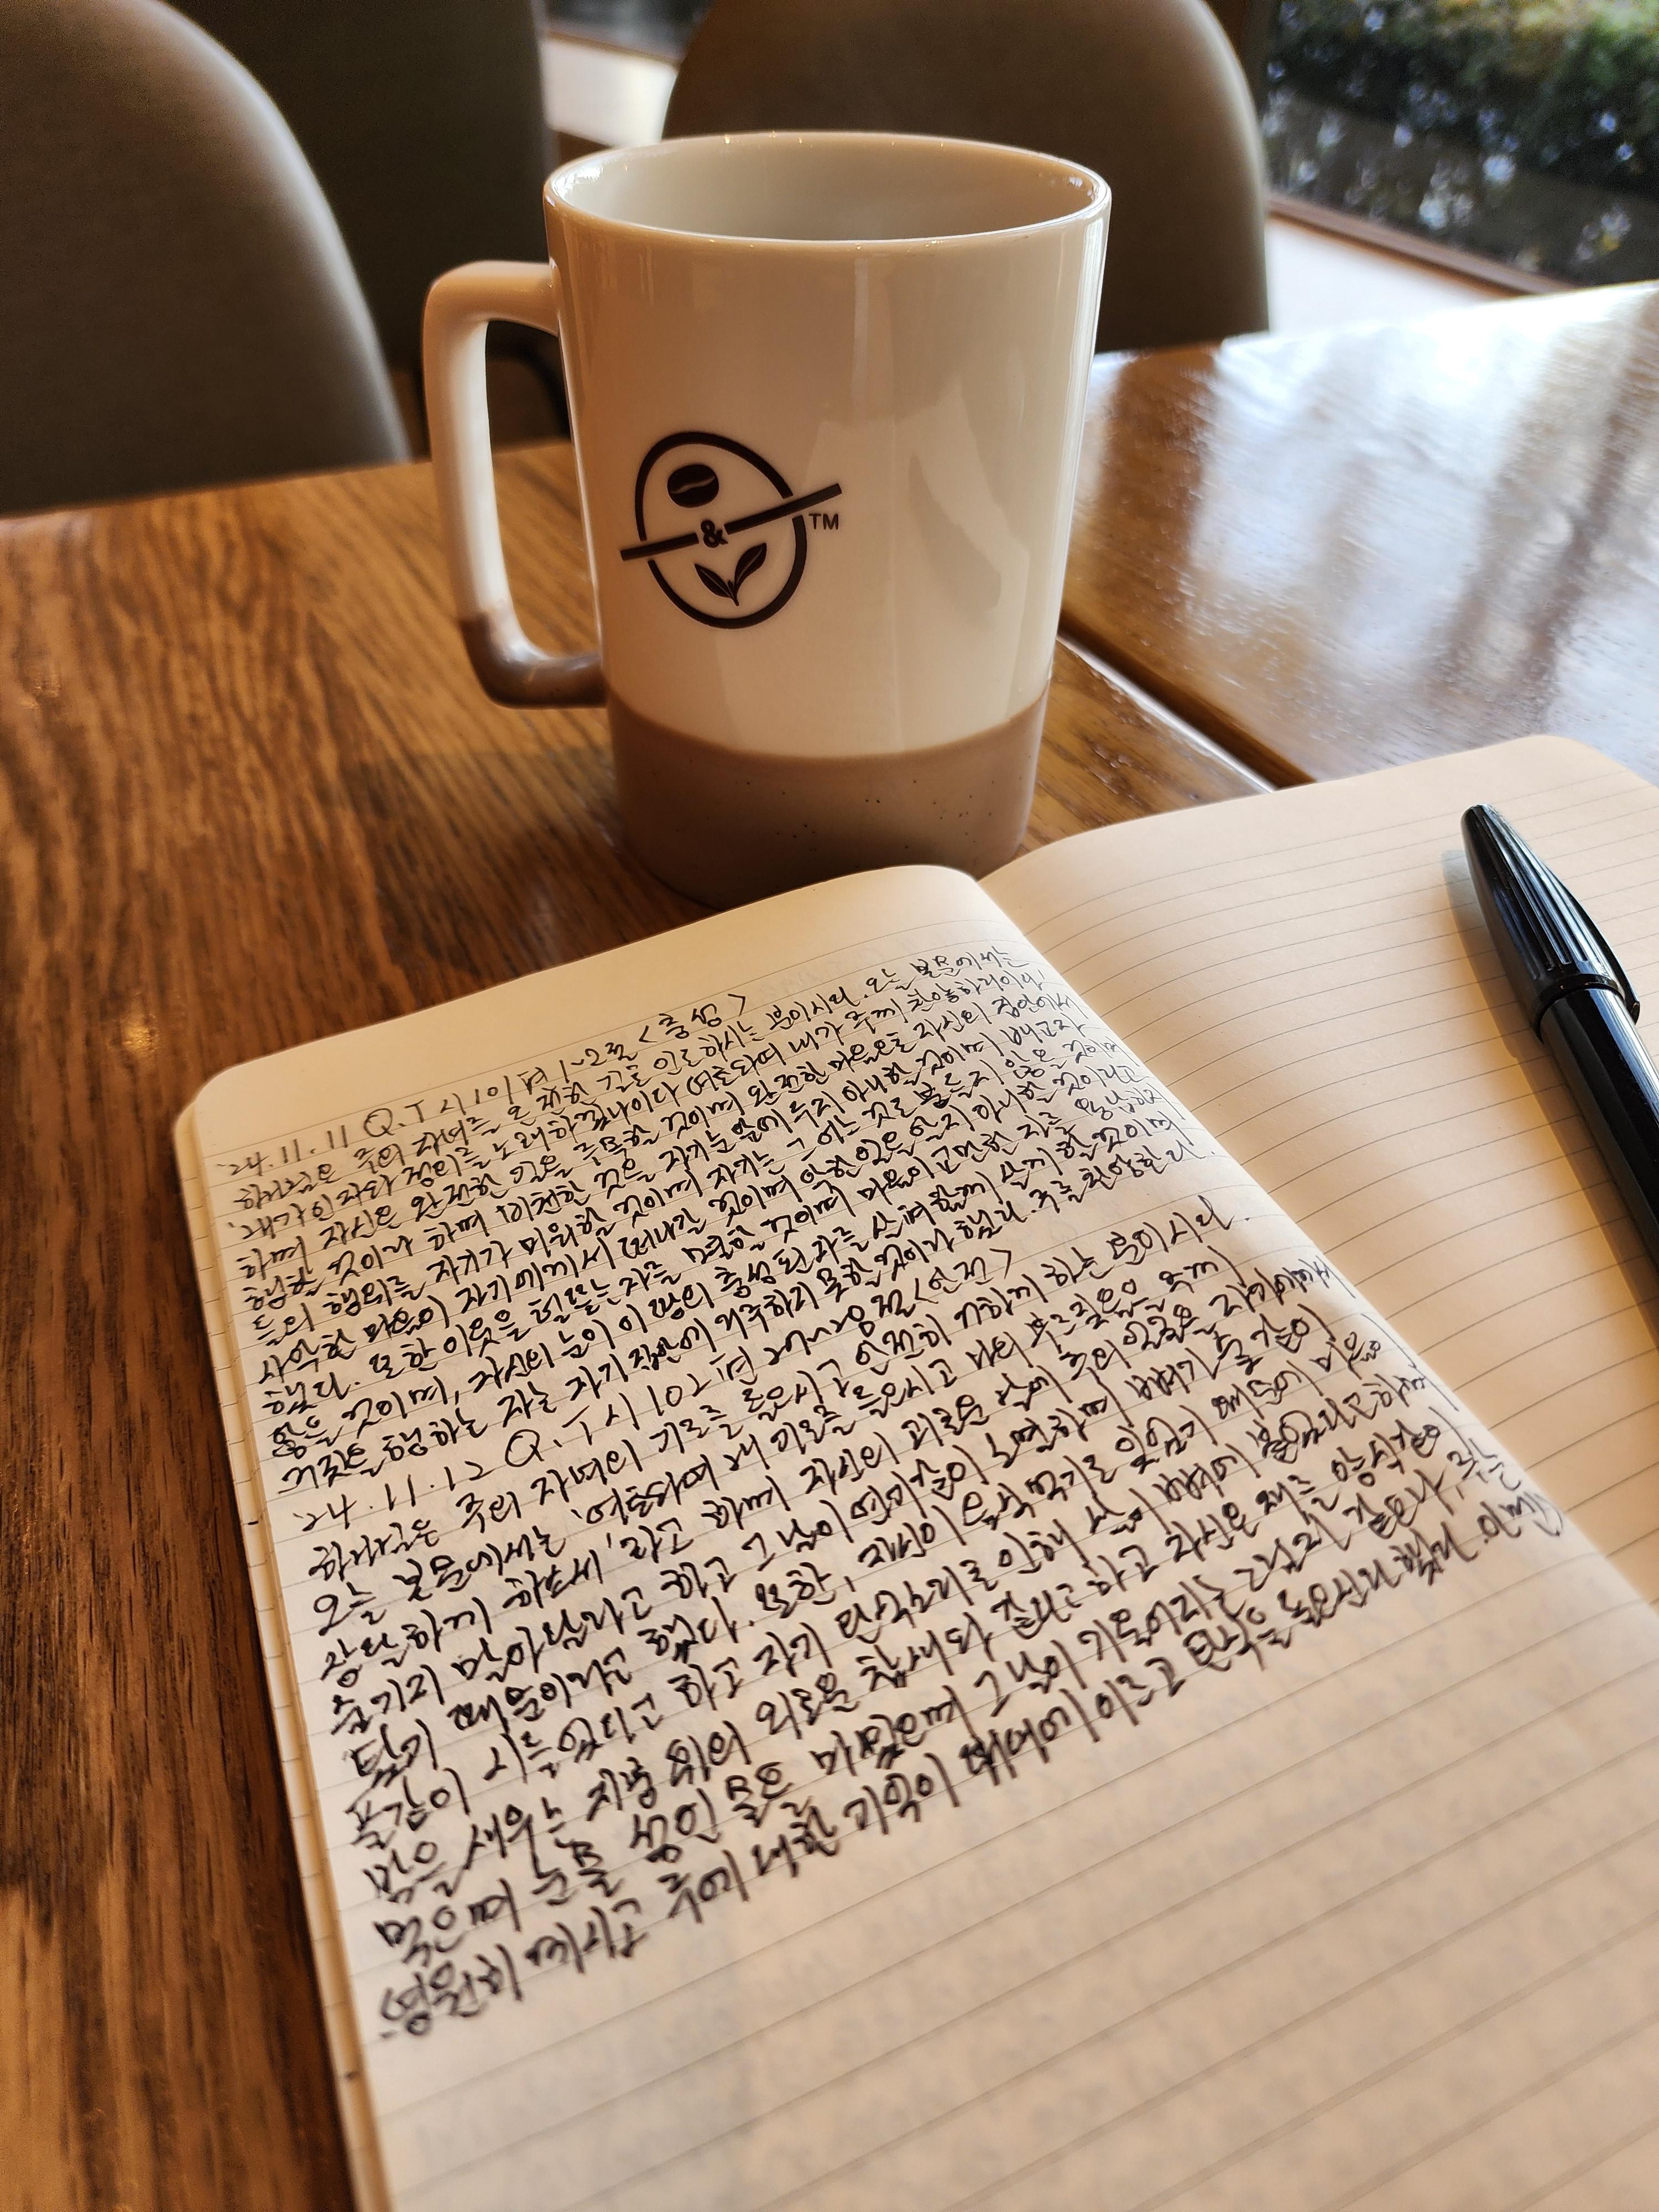 &
TM
'24.11.11 Q.T 시 101편 1~8절 <품성>
하나님은 주의 자녀를 온전한 길로 인도하시는 분이시다. 오늘 본문에서는
'내가 인자와 정의를 노래하겠나이다 여호와여 내가 주께 찬양하리이다'
하며 자신은 완전한 길을 주목할 것이며 완전한 마음으로 자신의 집안에서
행할 것이라 하며 비천한 것은 자기는 눈앞에 두지 아니할 것이며 배교자
들의 행위를 자기가 미워할 것이며 자기는 그 어느 것도 붙들지 않을 것이며
사악한 마음이 자기에게서 떠나갈 것이며 악한 일은 알지 아니할 것이라고
했다. 또한 이웃을 헐뜯는 자를 멸할 것이며 마음이 교만한 자를 용납하지
않을 것이며, 자신의 눈이 이 땅의 충성된 자를 살펴 함께 살게 할 것이며
거짓을 행하는 자는 자기 집안에 거주하지 못할 것이라 했다. 주를 찬양한다.
'24.11.12 Q.T 시 102편 <언젠>
하나님은 주의 자녀의 기도를 들으시고 온전히 거하게 하는 분이시다.
오늘 본문에서는 '여호와여 내 기도를 들으시고 나의 부르짖음을 주께
상달하게 하소서'라고 하며 자신의 괴로운 날에 주의 얼굴을 자기에게서
숨기지 말아달라고 하고 그 날이 연기 같이 소멸하며 뼈가 숯 같이
탔기 때문이라고 했다. 또한, 자신이 음식 먹기도 잊었기 때문에 마음이
풀 같이 시들었다고 하고 자기 탄식소리로 인해 살이 뼈에 붙었다고 하며
밤을 새우는 지붕 위의 외로운 참새와 같다고 하고 자신은 재를 양식 같이
먹으며 눈물 섞인 물을 마셨으며 그 날이 기울어지는 그림자 같으나, 주는
영원히 계시고 주에 대한 기억이 대대에 이르고